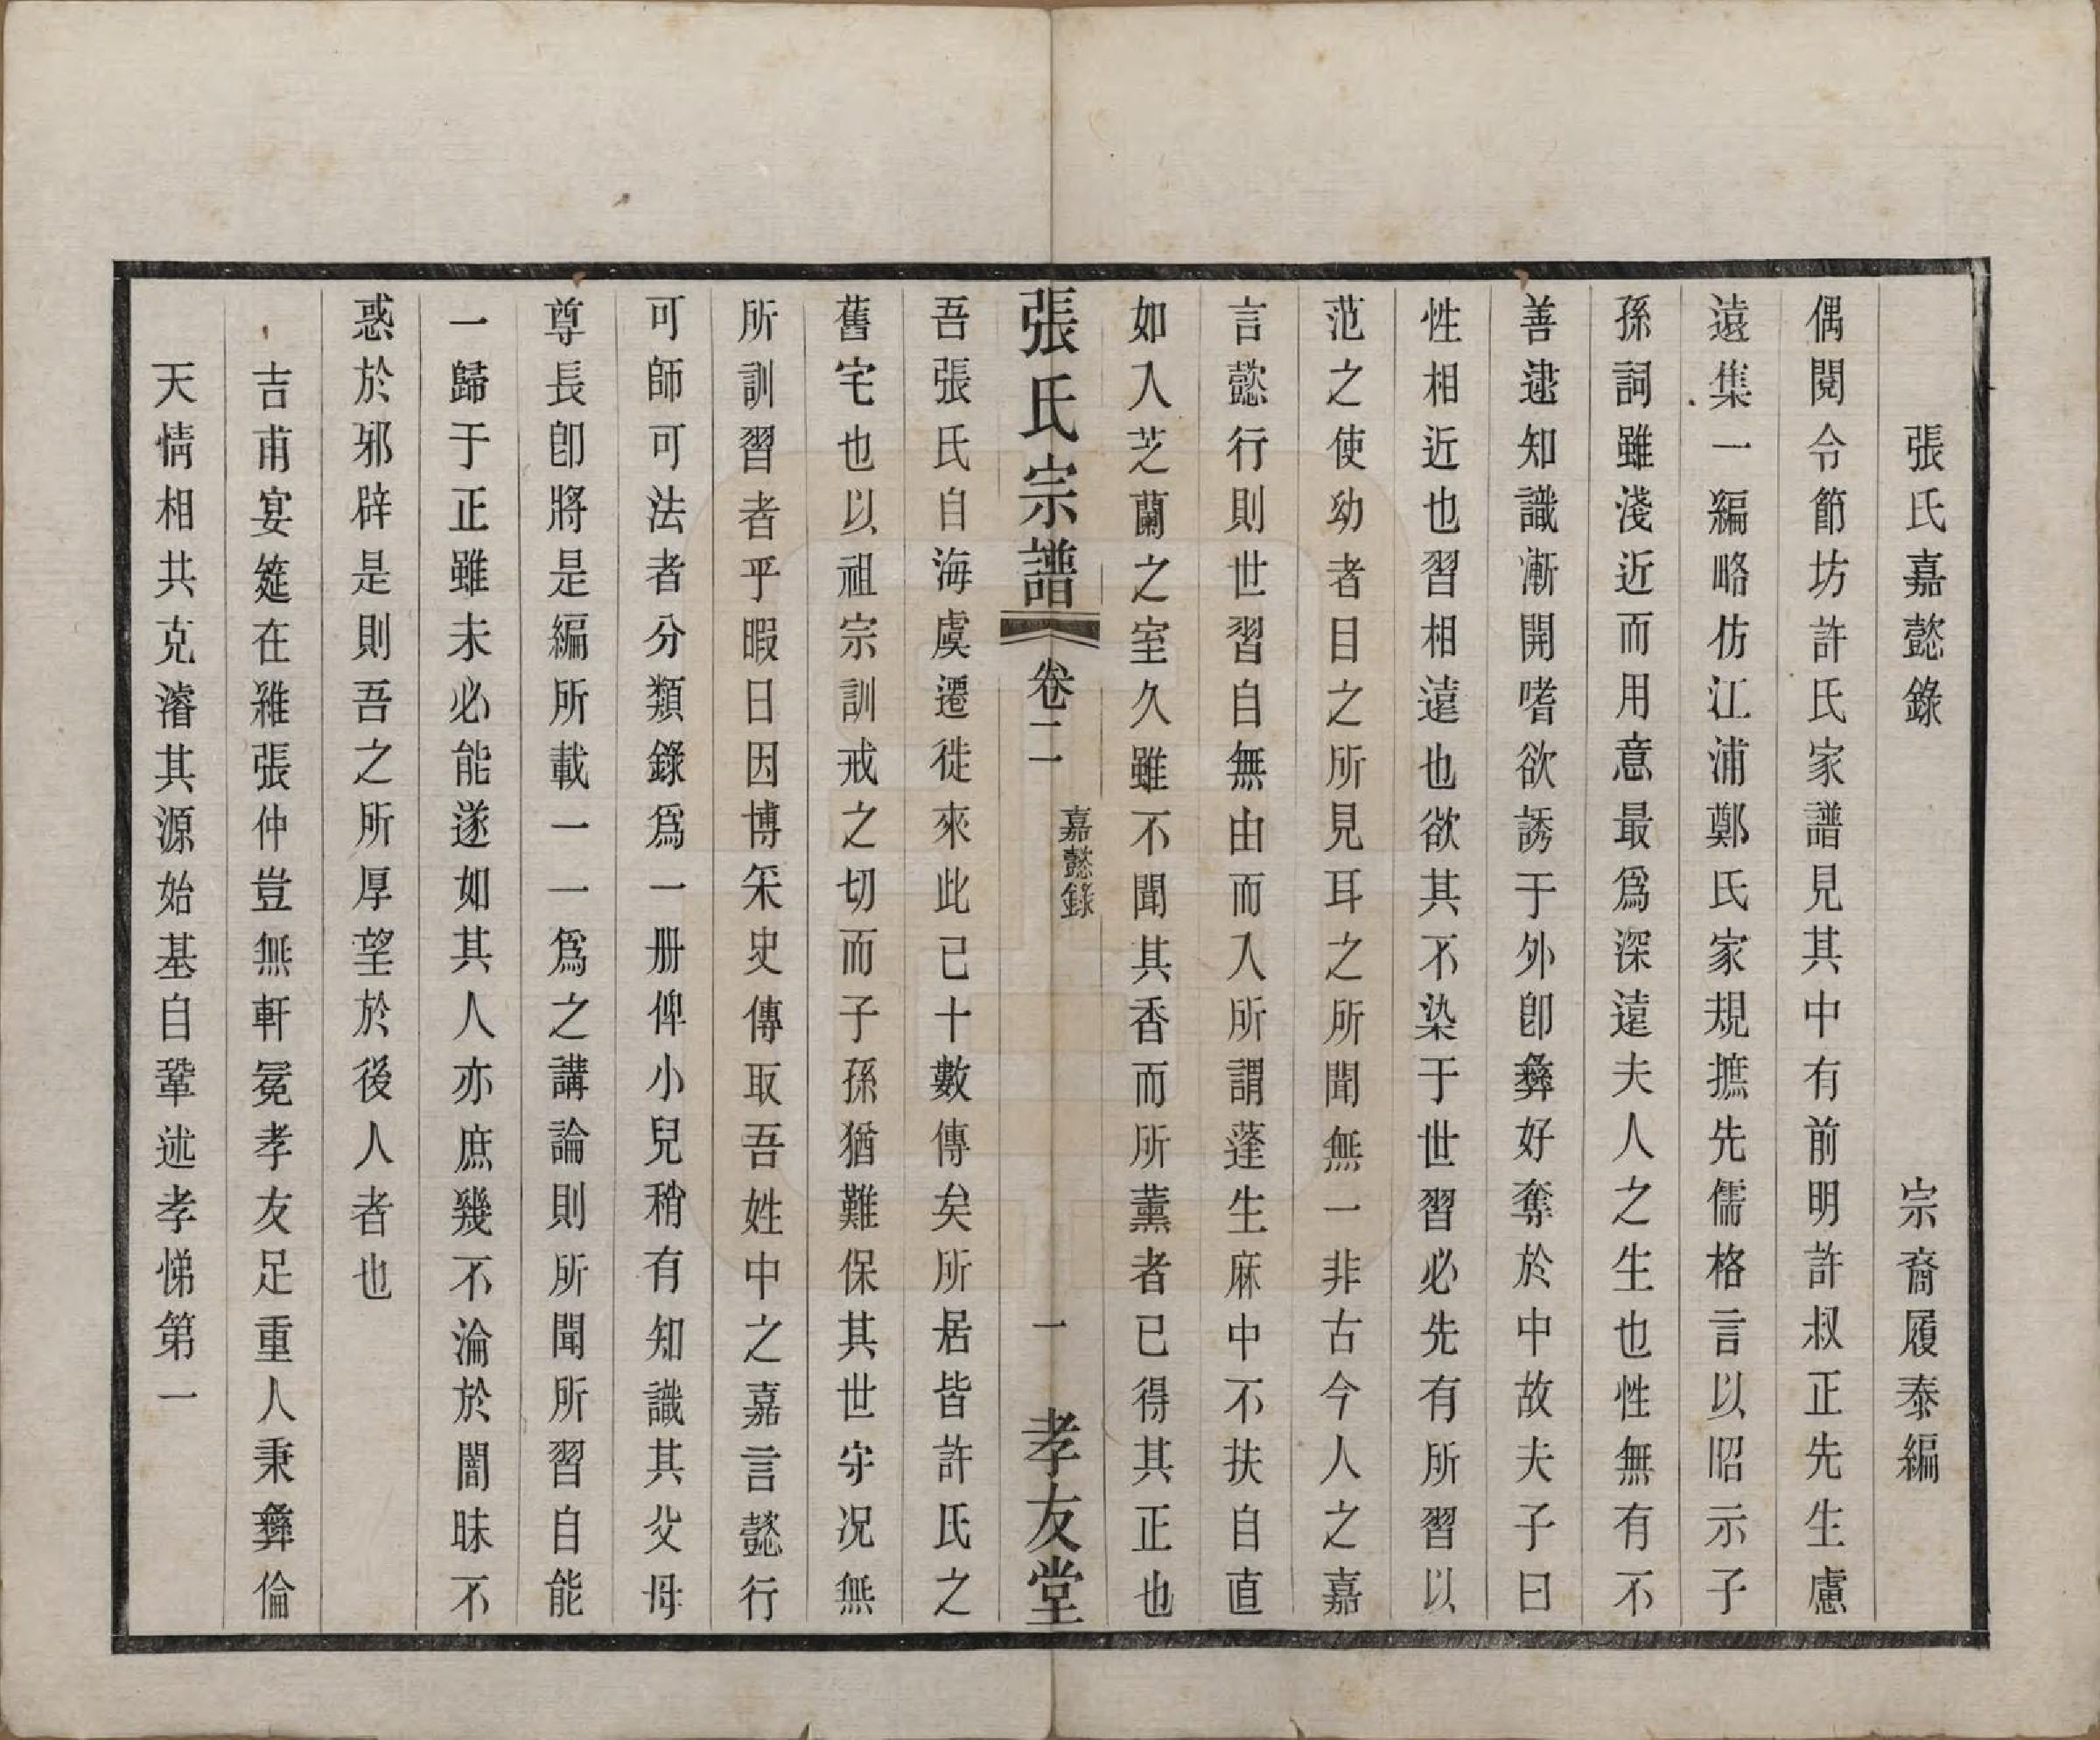 張氏嘉懿錄　宗裔履泰編
偶閱令節坊許氏家譜見其中有前明許叔正先生慮
遠集一編略仿江浦鄭氏家規摭先儒格言以昭示子
孫詞雖淺近而用意最爲深遠夫人之生也性無有不
善逮知識漸開嗜欲誘于外卽彝好奪於中故夫子曰
性相近也習相遠也欲其不染于世習必先有所習以
范之使幼者目之所見耳之所聞無一非古今人之嘉
言懿行則世習自無由而入所謂蓬生麻中不扶自直
如入芝蘭之室久雖不聞其香而所薰者已得其正也
張氏宗譜　卷二　嘉懿錄　一　孝友堂
吾張氏自海虞遷徙來此已十數傳矣所居皆許氏之
舊宅也以祖宗訓戒之切而子孫猶難保其世守况無
所訓習者乎暇日因博采史傳取吾姓中之嘉言懿行
可師可法者分類錄爲一册俾小兒稍有知識其父母
尊長卽將是編所載一一爲之講論則所聞所習自能
一歸于正雖未必能遂如其人亦庶幾不淪於闇昧不
惑於邪辟是則吾之所厚望於後人者也
吉甫宴筵在雜張仲豈無軒冕孝友足重人秉彝倫
天情相共克濬其源始基自鞏述孝悌第一